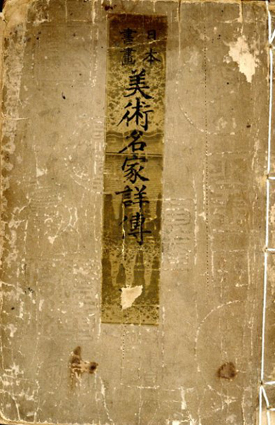 日本
書畫
美術名家詳傳